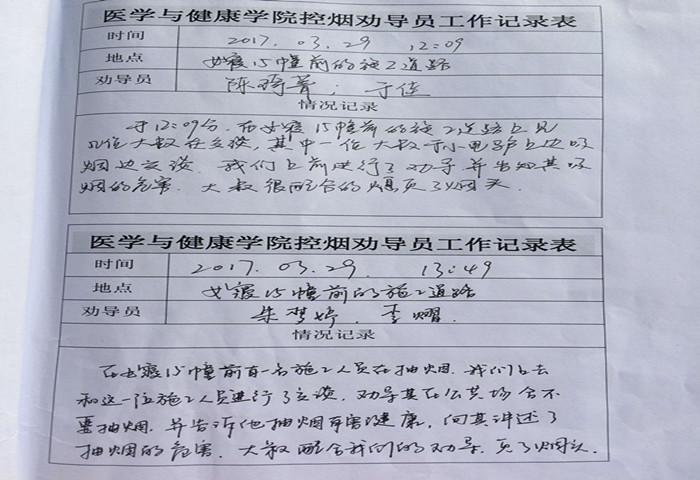 医学与健康学院控烟劝导员工作记录表
时间 2017. 03. 29 12:09
地点 女寝15幢前的施工道路
劝导员 陈琦菁; 于佳
情况记录
于12:09分,在女寝15幢前的施工道路上见
几位大叔在交谈,其中一位大叔于小电驴上边吸
烟边交谈.我们上前进行了劝导并告知其吸
烟的危害.大叔很配合的熄灭了烟头.
医学与健康学院控烟劝导员工作记录表
时间 2017. 03. 29. 13:49
地点 女寝15幢前的施工道路
劝导员 朱梦婷. 李熠.
情况记录
在女寝15幢前有一名施工人员在抽烟.我们上去
和这一位施工人员进行了交谈.劝导其在公共场合不
要抽烟.并告诉他抽烟有害健康,向其讲述了
抽烟的危害.大叔配合我们的劝导.灭了烟头.